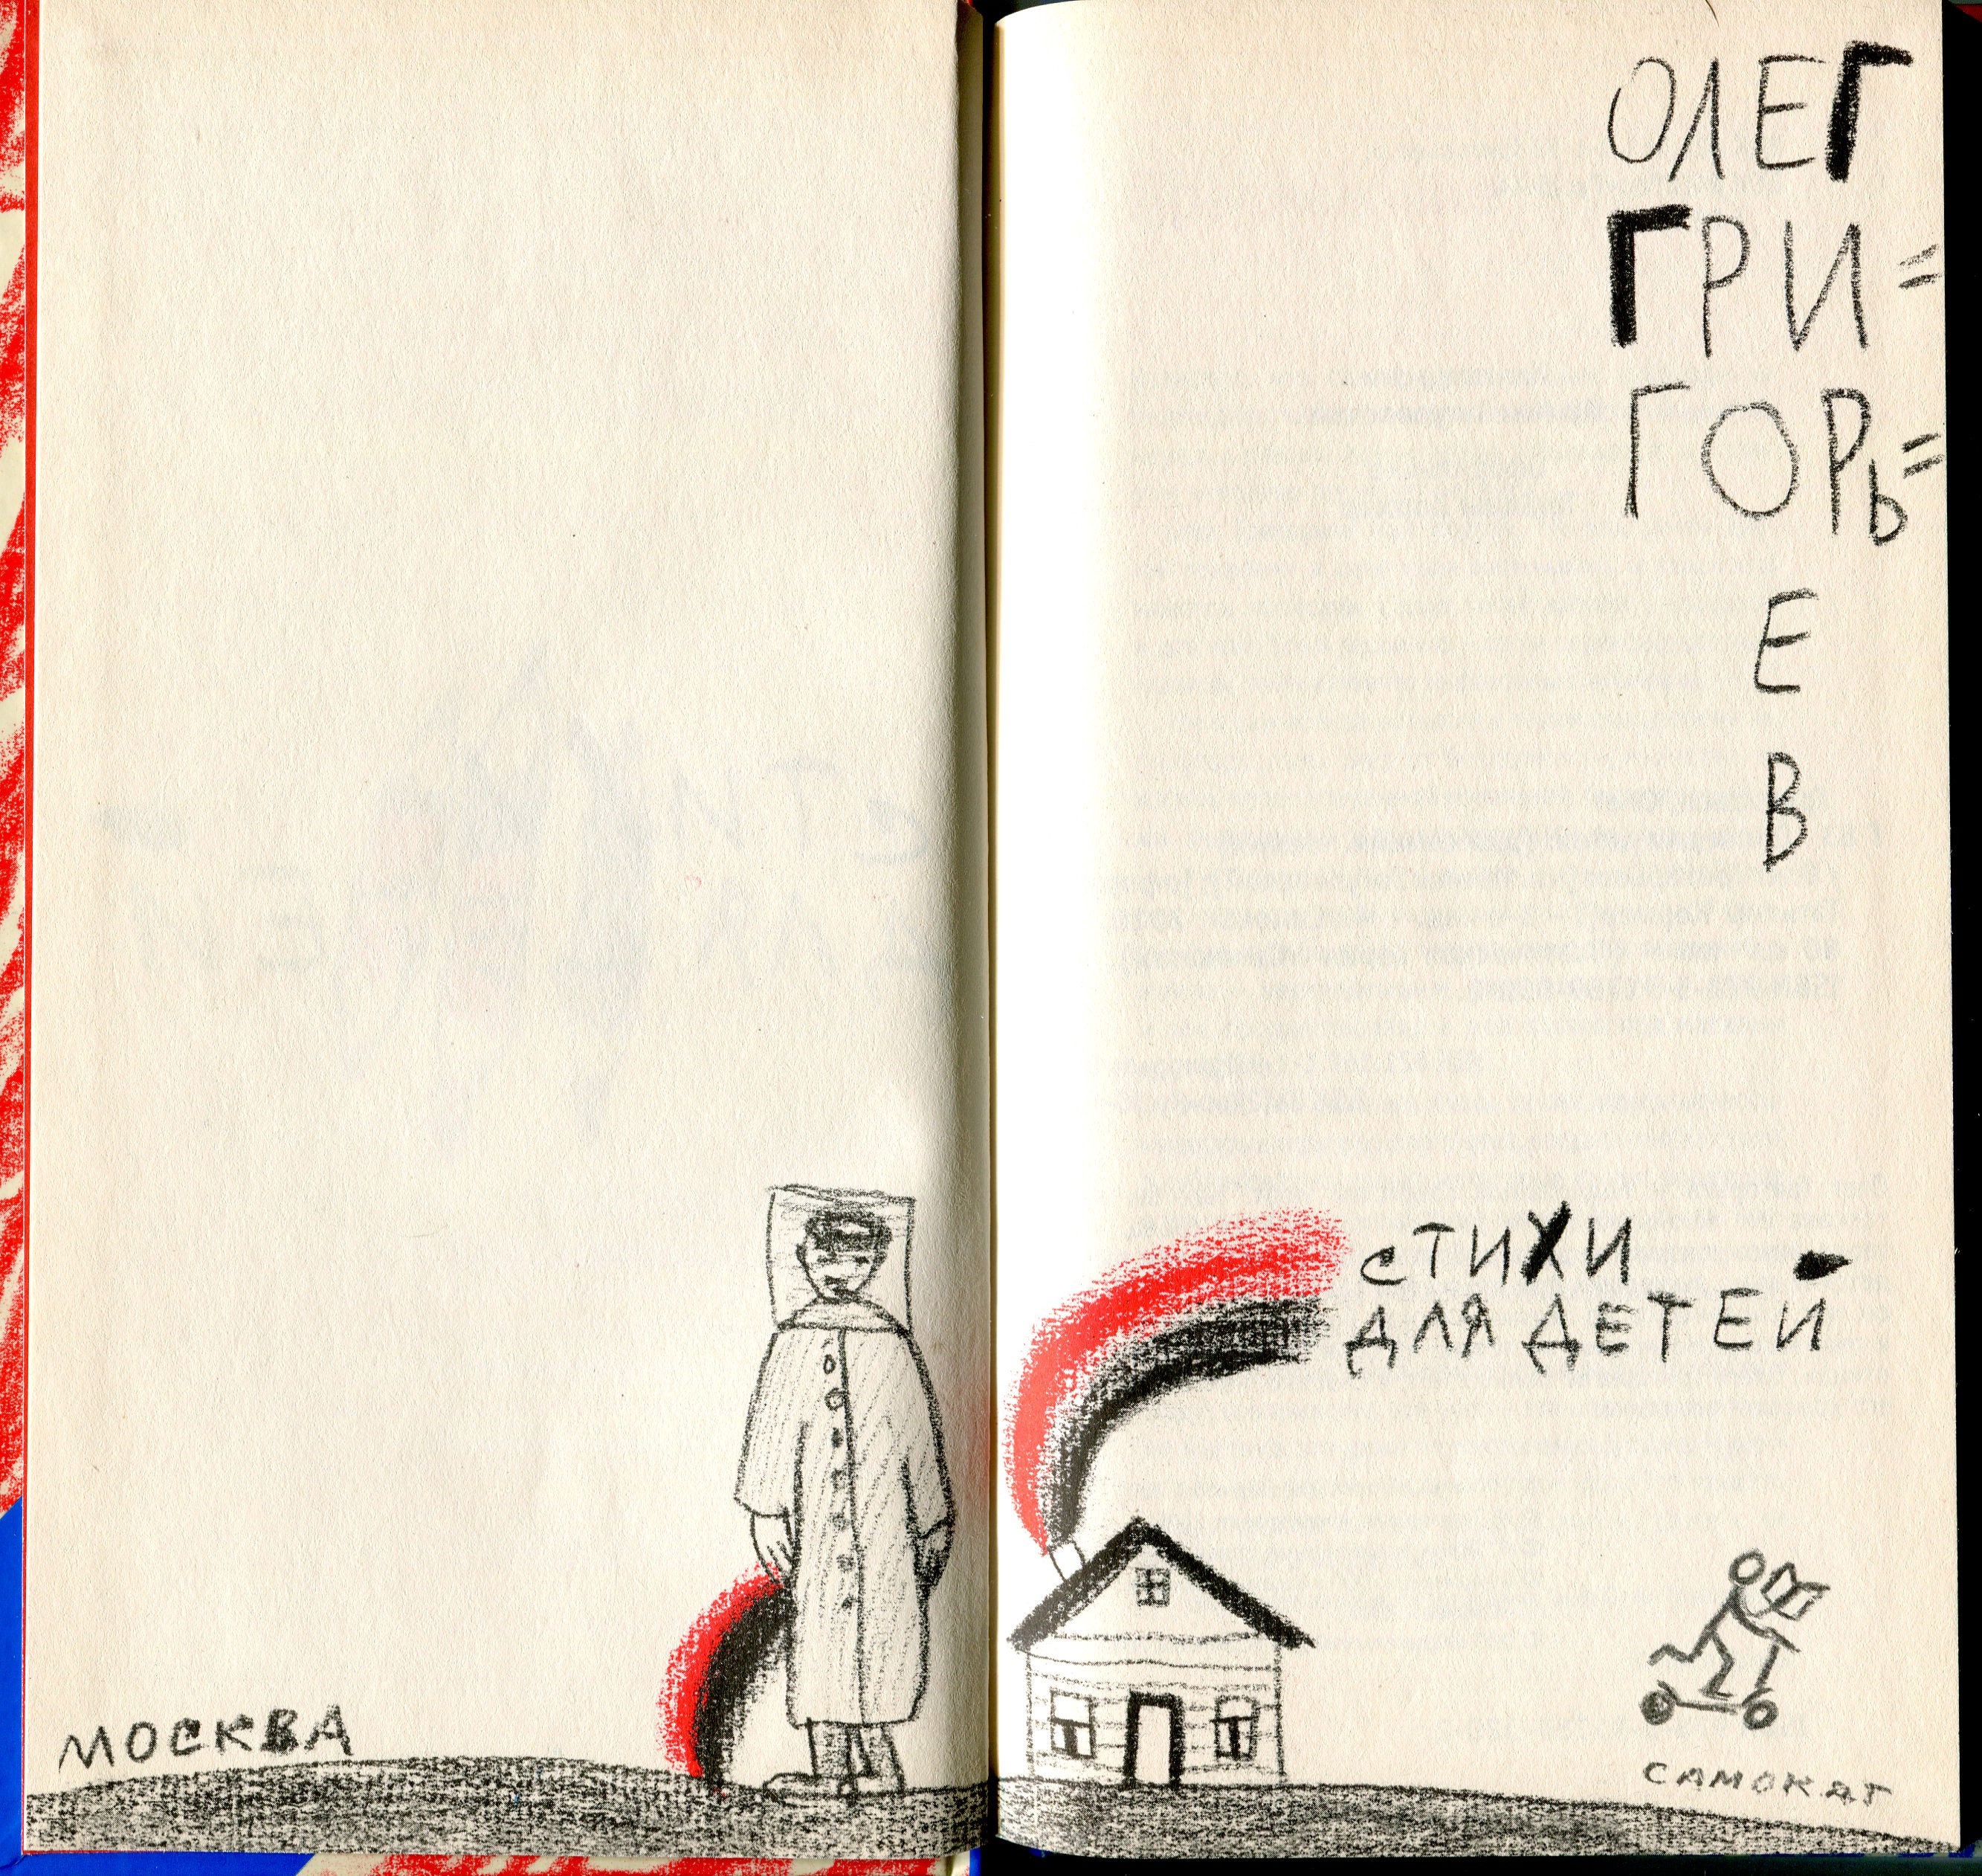 МОСКВА
ОЛЕГ
ГРИ=
ГОРЬ=
Е
В
СТИХИ
ДЛЯ ДЕТЕЙ
САМОКАТ